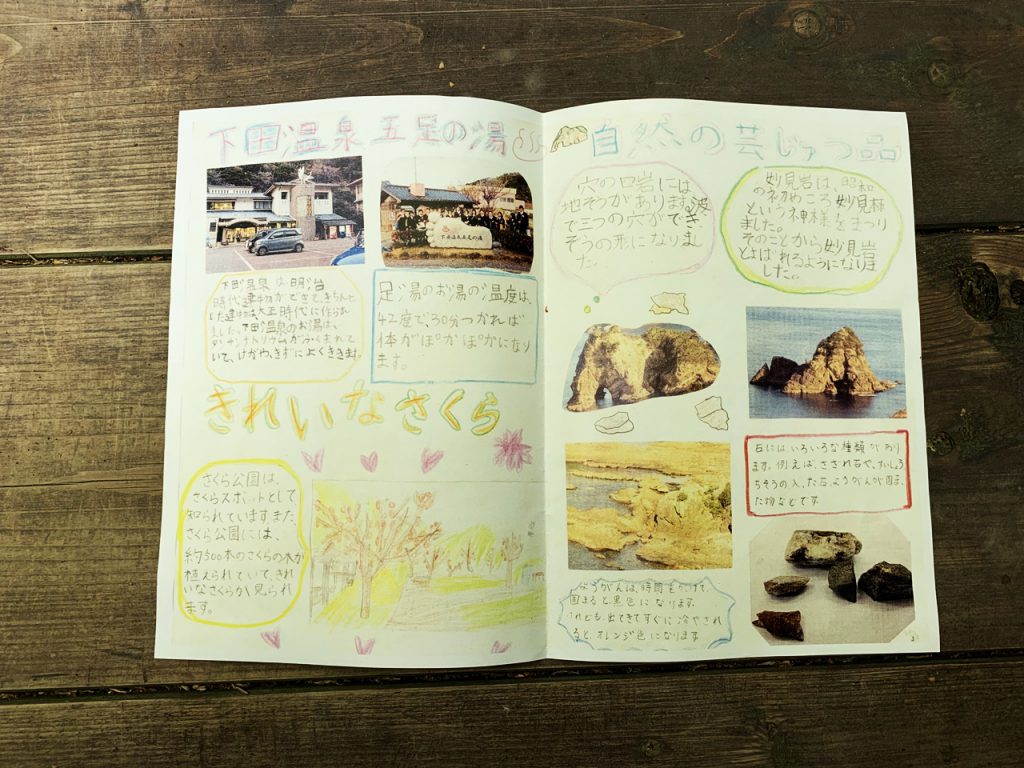 下田温泉五足の湯
下田温泉は明治
時代建物ができて、きちんと
した建物は大正時代に作られ
ました。下田温泉のお湯は、
ナトリウムがふくまれて
いて、けがや、きずによくききます。
下田温泉五足の湯
足湯のお湯の温度は、
42度で、30分つかれば
体がぽかぽかになり
ます。
きれいなさくら
さくら公園は、
さくらスポットとして
知られています。また、
さくら公園には、
約500本のさくらの木が
植えられていて、きれ
いなさくらが見られ
ます。
自然の芸じゅつ品
穴の口岩には
地そうがあります。波
で三つの穴ができ、
ぞうの形になりまし
た。
妙見岩は、昭和
のころ妙見様
という神様をまつり
ました。
そのことから妙見岩
とよばれるようになりま
した。
石にはいろいろな種類があり
ます。例えば、さざれ石や、すいしょう
ちそうの入った石、ようがんが固まっ
た物などです
ようがんは、時間をかけて、
固まると黒色になります。
けれども、出てきてすぐに冷やされ
ると、オレンジ色になります